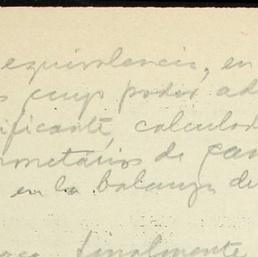 equivalencia, en
s cuyo poder ad
ificante, calculad
monetarios de
en la balanza de
finalmente